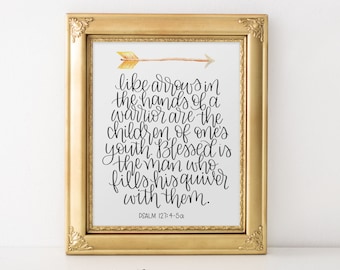 like arrows in
the hands of a
warrior are the
children of one's
youth. Blessed is
the man who
fills his quiver
with them.
PSALM 127:4-5a